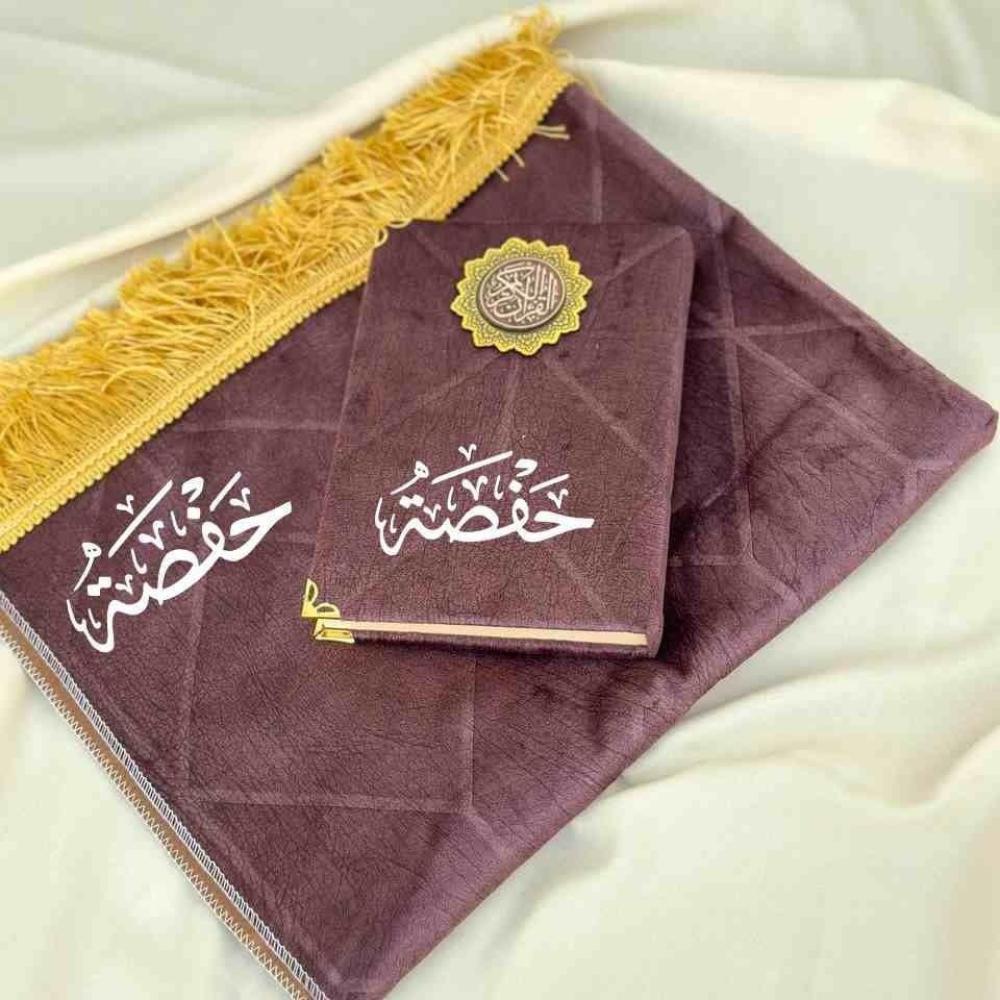 القرآن الكريم
حَفْصَةُ
حَفْصَةُ